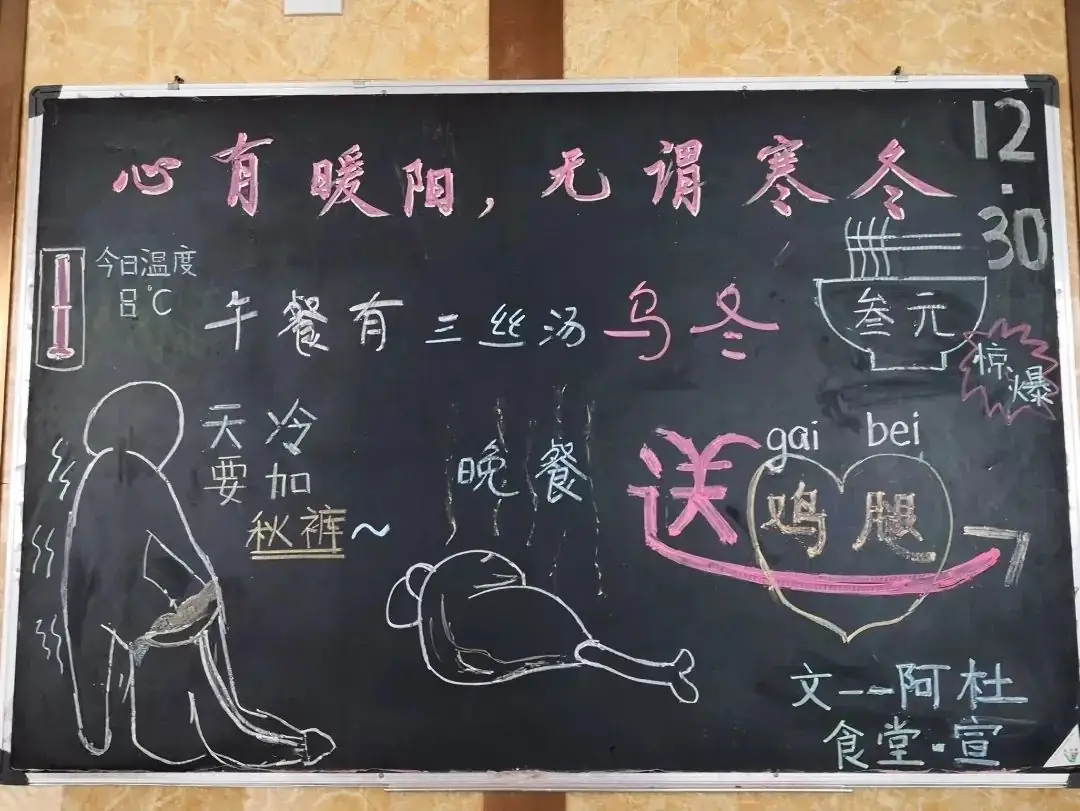 12.30
心有暖阳，无谓寒冬
今日温度
8℃
午餐有三丝汤乌冬
叁元
惊爆
天冷
要加
秋裤~
晚餐
送鸡腿
gai bei
文--阿杜
食堂·宣